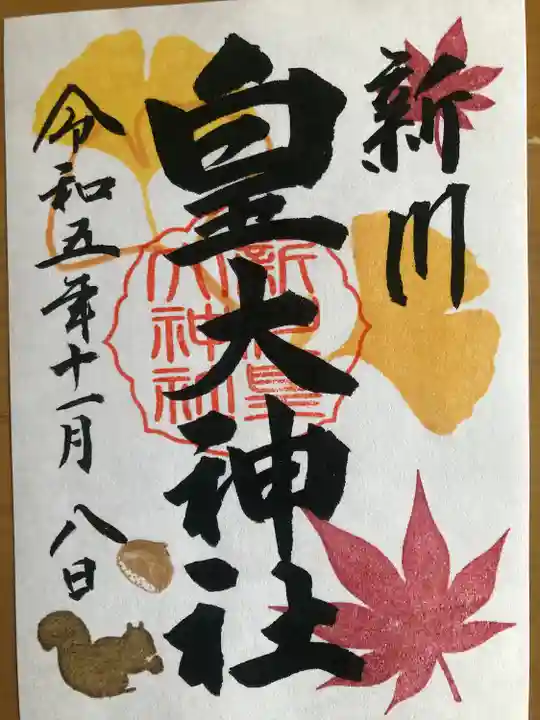 新川
皇大神社
新川皇
大神社
令和五年十一月八日